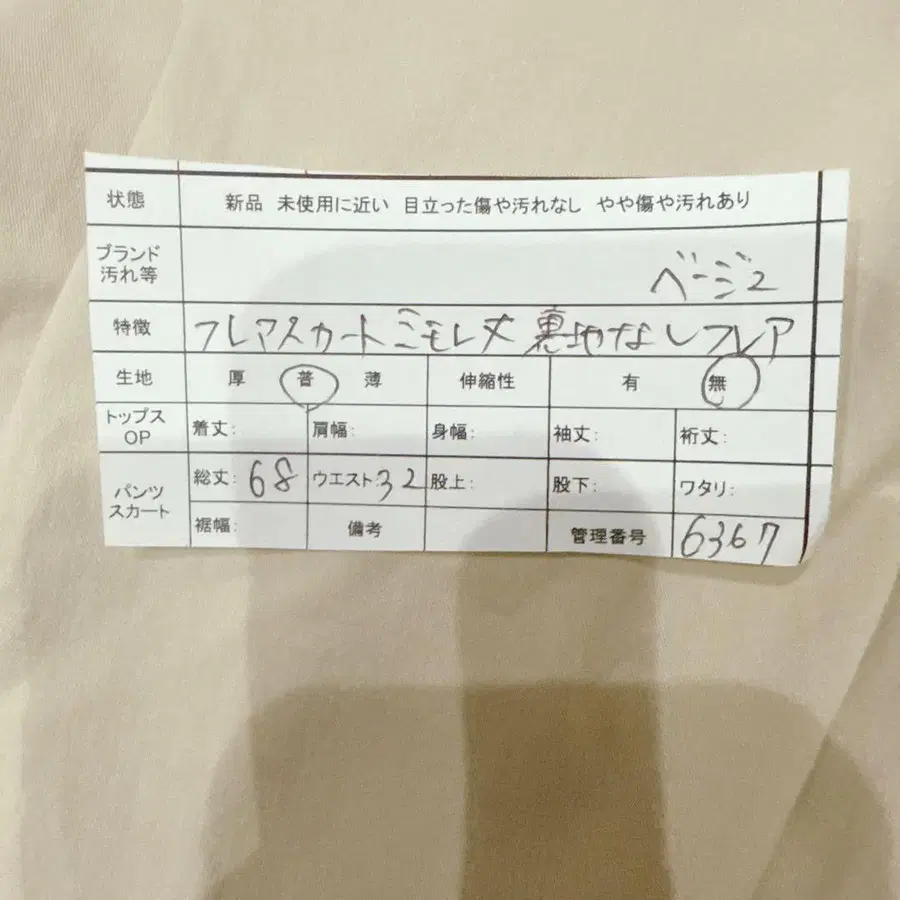 状態 新品 未使用に近い 目立った傷や汚れなし やや傷や汚れあり
ブランド
汚れ等 ベージュ
特徴 フレアスカート ミモレ丈 裏地なし フレア
生地 厚 普 薄 伸縮性 有 無
トップス
OP 着丈: 肩幅: 身幅: 袖丈: 裄丈:
パンツ
スカート 総丈: 68 ウエスト: 32 股上: 股下: ワタリ:
裾幅: 備考 管理番号 6367